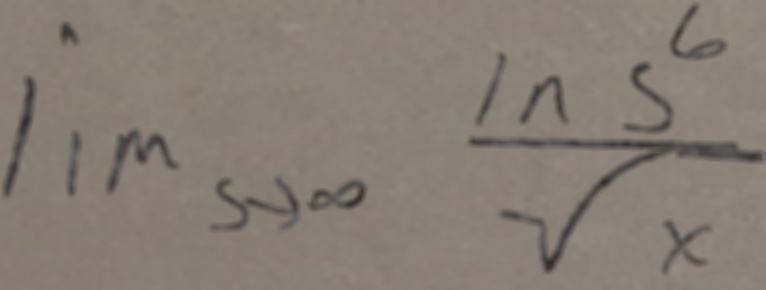 lim_{s→∞} \frac{ln s^6}{\sqrt{x}}